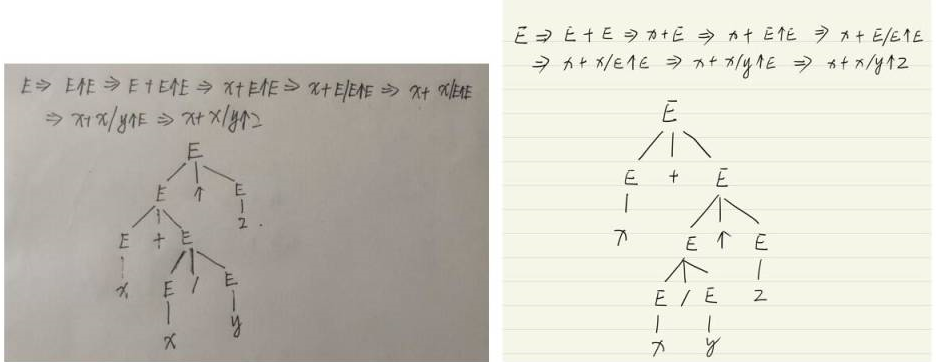 E ⇒ E↑E ⇒ E + E↑E ⇒ x + E↑E ⇒ x + E/E↑E ⇒ x + x/E↑E
⇒ x + x/y↑E ⇒ x + x/y↑2
E
E ↑ E
E + E 2
x E / E
x y
E ⇒ E + E ⇒ x + E ⇒ x + E↑E ⇒ x + E/E↑E
⇒ x + x/E↑E ⇒ x + x/y↑E ⇒ x + x/y↑2
E
E + E
x E ↑ E
E / E 2
x y